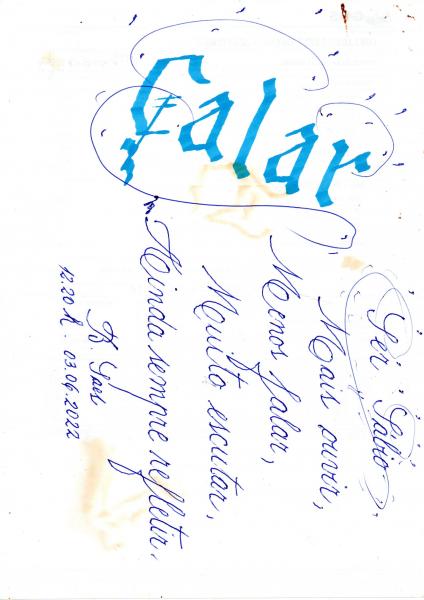 Calar
Ser Sábio
Mais ouvir,
Menos falar,
Muito escutar,
Ainda sempre refletir.
12.20h - 03.06.2022